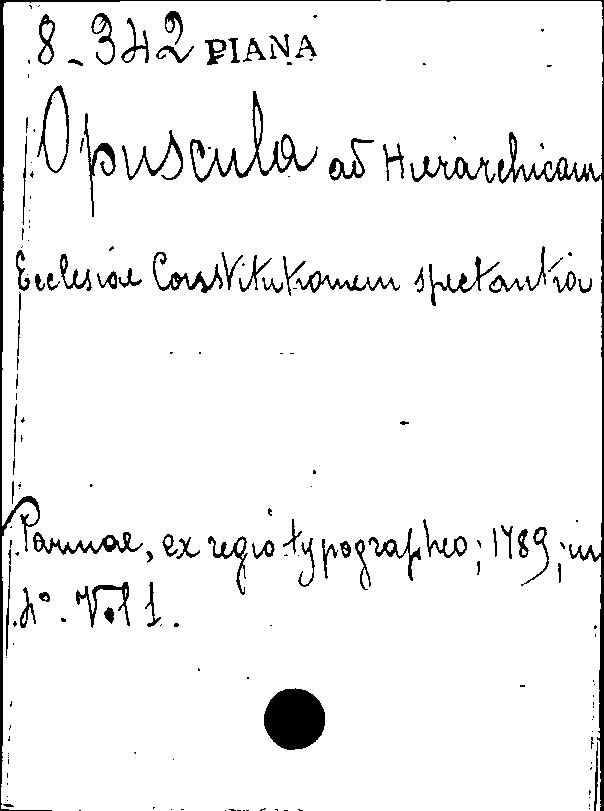 8-342 PIANA
Opuscula ad Hierarchicam
Ecclesiae Constitutionem spectantia
Parmae, ex regio typographeo; 1789; in
4º. Vol 1.